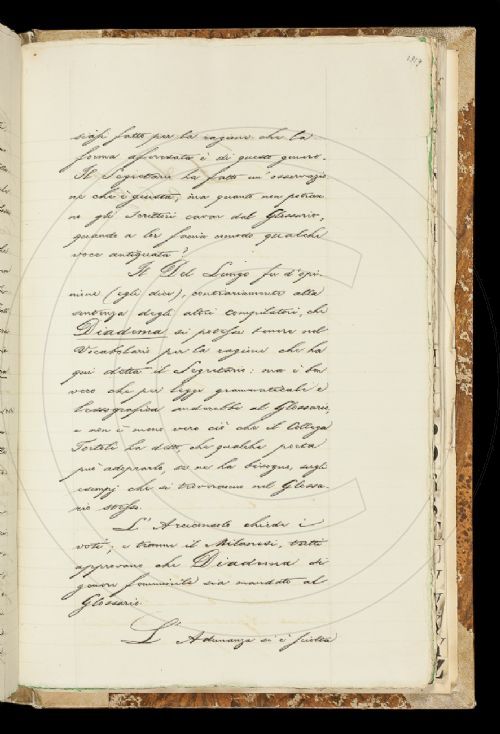 siasi fatto per la ragione che la
forma accresciuta è di questo genere.
Il Segretario ha fatto un' osservazio
ne che è giusta; ma quanto non potran
no gli scrittori cavar dal Glossario,
quando a lor faccia comodo qualche
voce antiquata?
Il Del Lungo fu d'opi-
nione (egli dice), contrariamente alla
sentenza degli altri compilatori, che
Diadema si potesse tenere nel
Vocabolario per la ragione che ha
qui detta il Segretario: ma è ben
vero che per legge grammaticale e
lessografica anderebbe al Glossario,
e non è meno vero ciò che il Collega
Tortoli ha detto, che qualche poeta
può adoprarlo, se ne ha bisogno, sugli
esempj che si troveranno nel Glossa-
rio stesso.
L' Arciconsolo chiede i
voti; e tranne il Milanesi, tutti
approvano che Diadema di
genere femminile sia mandato al
Glossario.
L' Adunanza si è sciolta